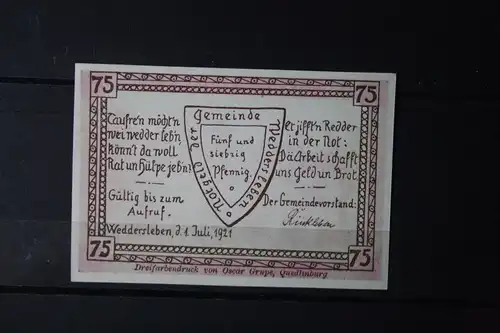 75
75
Notgeld der Gemeinde Weddersleben
Taufre'n möcht'n
wei wedder leb'n,
könn't da woll
Rat un Hülpe jeb'n?
Gültig bis zum
Aufruf.
Weddersleben, d. 1 Juli, 1921
Fünf und
siebzig
Pfennig.
Et jifft'n Redder
in der Not:
Dä Arbeit schafft
uns Geld un Brot.
Der Gemeindevorstand:
75
75
Dreifarbendruck von Oscar Grupe, Quedlinburg